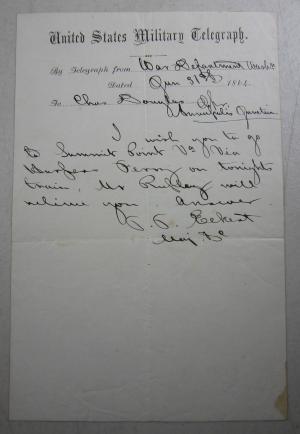 United States Military Telegraph.
By Telegraph from War Department Wash
Dated Jan 31st 1864.
To Chas Douglas Opr.
Annapolis Junction
I wish you to go
to Summit Point Va Via
Harpers Ferry on tonights
train. Mr will
relieve you. Answer
T. T. Eckert
Maj &c